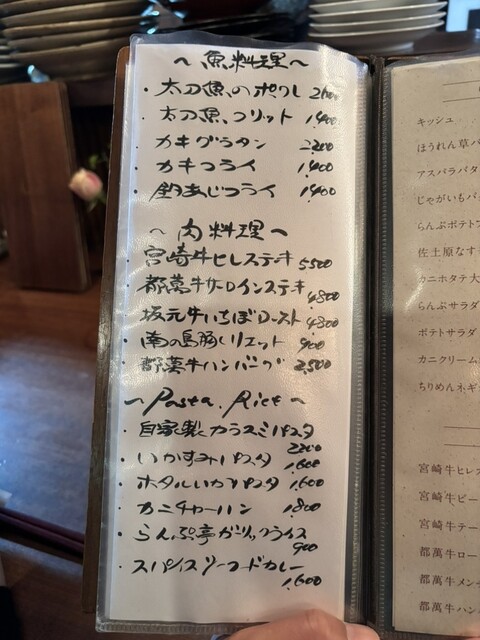 ～魚料理～
・太刀魚のポワレ 2200
・太刀魚、フリット 1,400
・カキグラタン 2,200
・カキフライ 1,400
・釣あじフライ 1,400
～肉料理～
宮崎牛ヒレステーキ 5500
・都萬牛サーロインステーキ 4800
・坂元牛いちぼロースト 4800
・南の島豚リエット 900
・都萬牛ハンバーグ 2,500
～Pasta, Rice～
・自家製カラスミパスタ 2200
・いかすみパスタ 1,600
・ホタルいかパスタ 1,600
・カニチャーハン 1,800
・らんぷ亭ガーリックライス 900
・スパイスシーフードカレー 1,600
キッシュ
ほうれん草バ
アスパラバタ
じゃがいもバ
らんぷポテトフ
佐土原なす
カニホタテ大
らんぷサラダ
ポテトサラダ
カニクリーム
ちりめんネギ
宮崎牛ヒレス
宮崎牛ビー
宮崎牛テー
都萬牛ロー
都萬牛メン
都萬牛ハン